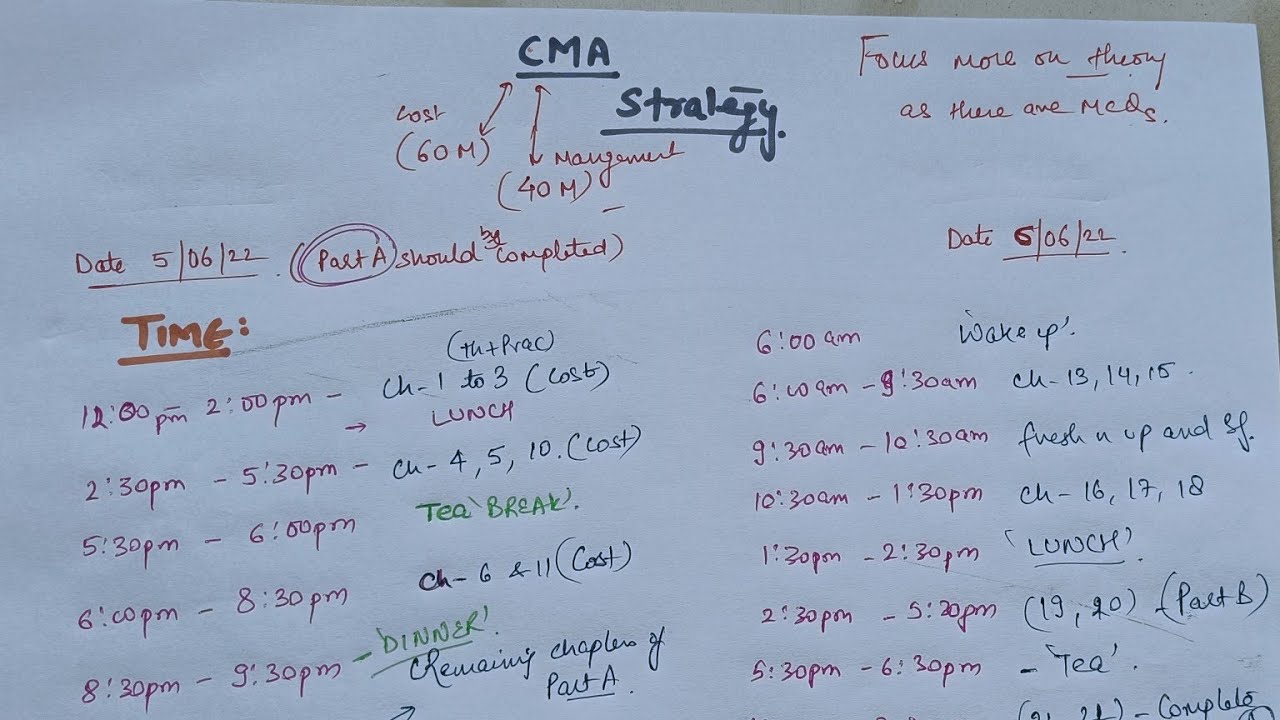 CMA
Strategy.
Cost
(60 M)
Mangement
(40 M)
Focus more on theory
as there are MCQs.
Date 5/06/22. (Part A should be completed)
TIME:
(th+Prac)
12:00pm - 2:00pm - Ch-1 to 3 (Cost)
→ LUNCH
2:30pm - 5:30pm - Ch-4, 5, 10. (Cost)
5:30pm - 6:00pm Tea 'BREAK'.
6:00pm - 8:30pm Ch-6 & 11 (Cost)
8:30pm - 9:30pm - 'DINNER'.
Remaining chapters of
Part A.
Date 6/06/22.
6:00am Wake up'.
6:00am - 9:30am Ch-13, 14, 15.
9:30am - 10:30am fresh n up and
10:30am - 1:30pm Ch-16, 17, 18
1:30pm - 2:30pm 'LUNCH'.
2:30pm - 5:30pm (19, 20) - (Part B)
5:30pm - 6:30pm - 'Tea'.
- Complete